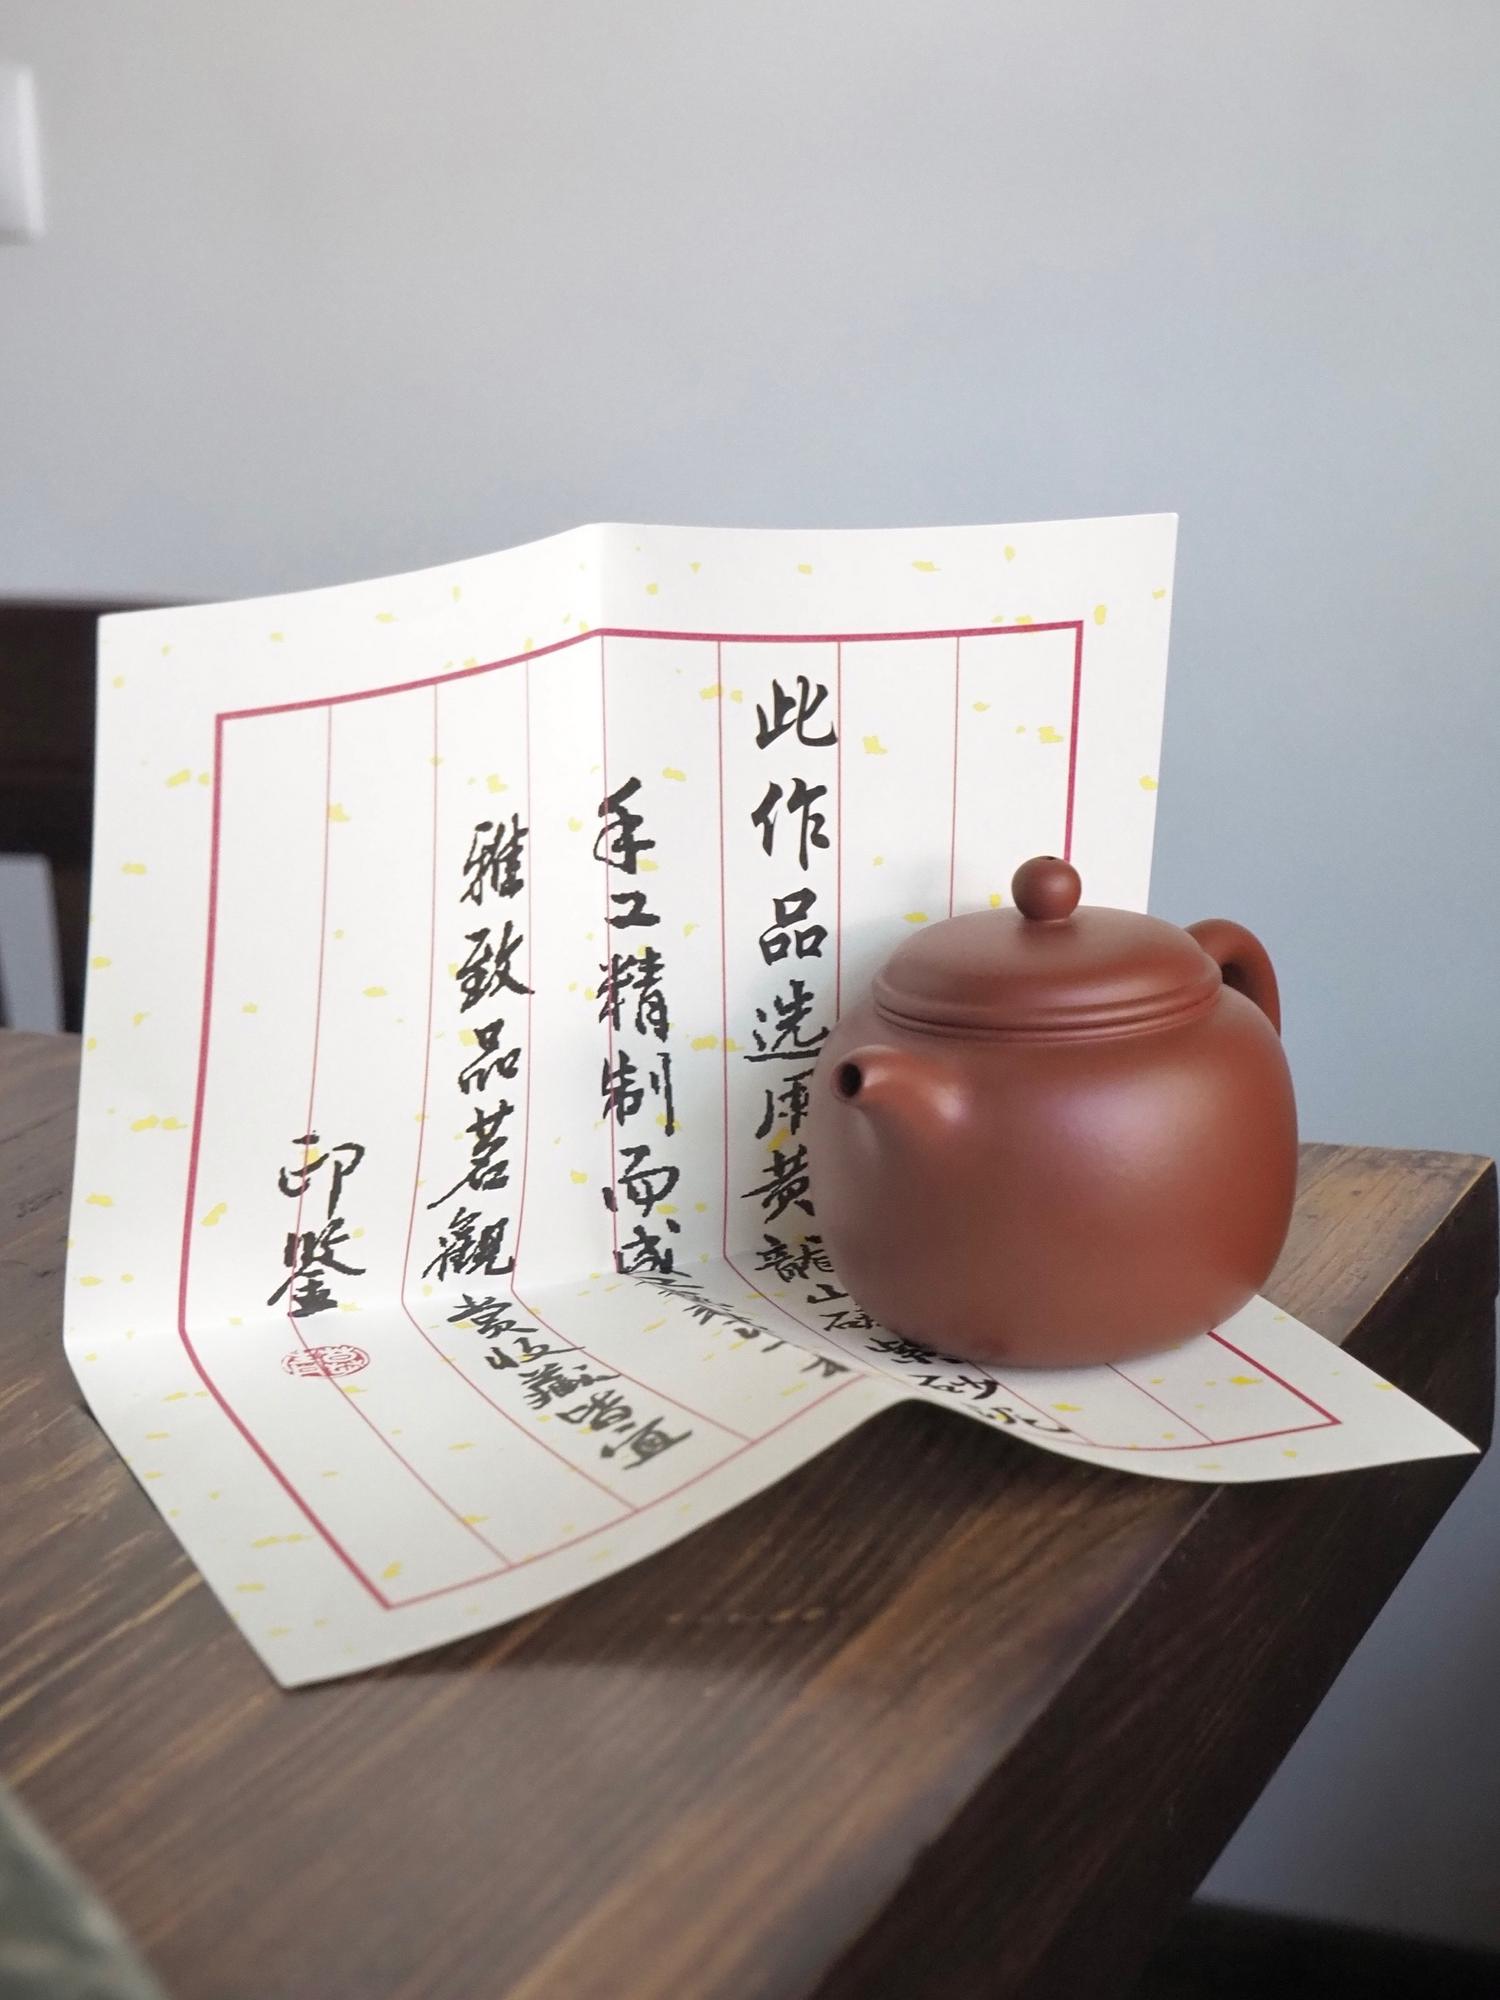 此作品选用黄龍山
手工精制而成
雅致品茗觀赏收藏皆宜
印鑒